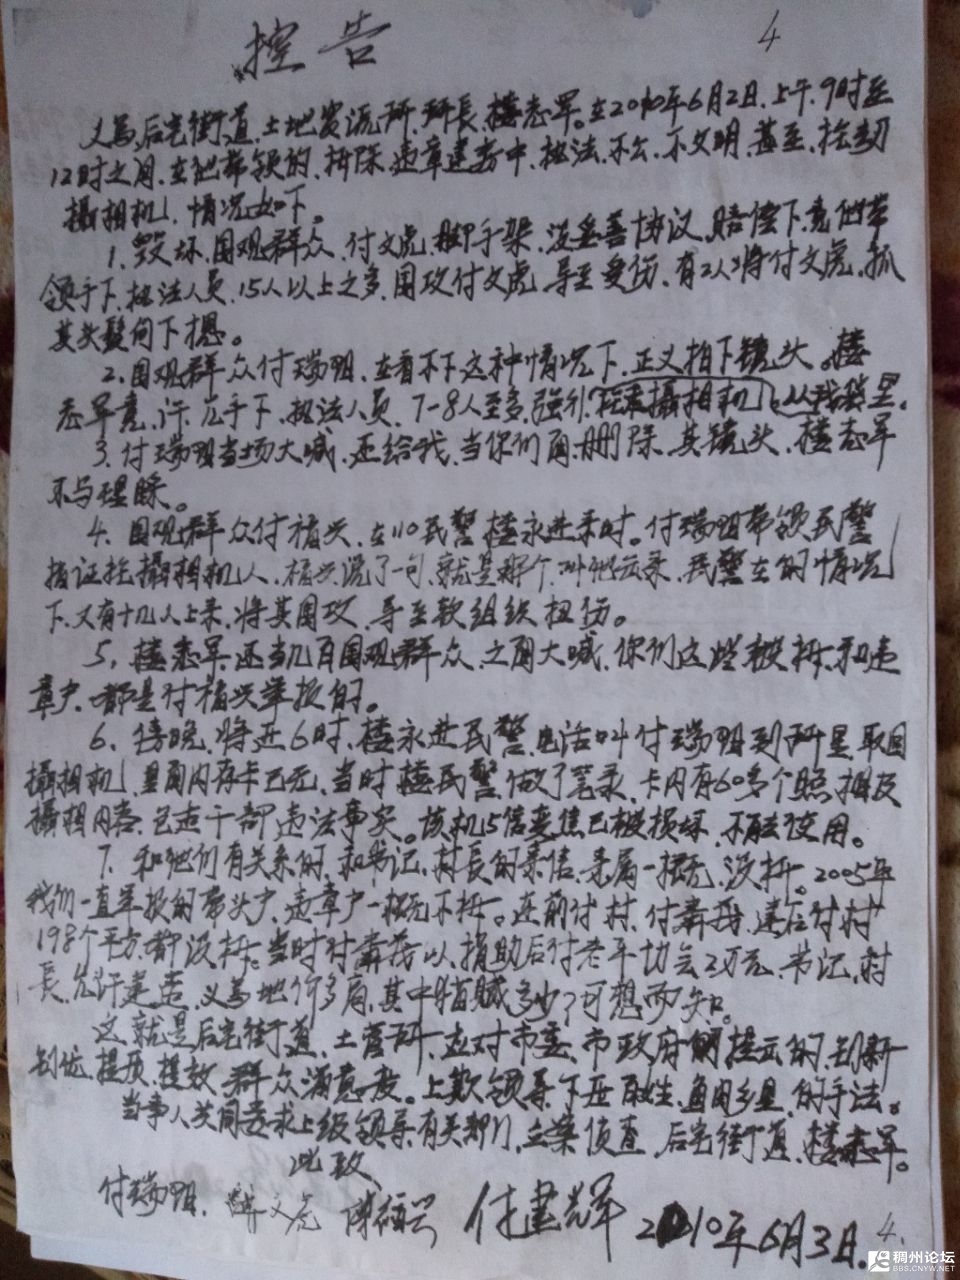 控告
4
义乌后宅街道、土地资源所、所长、楼志军。在2010年6月2日、上午、9时至
12时之间、在他带领的、拆除、违章建房中、执法、不公、不文明、甚至、抢劫
攝相机、情况如下。
1、毁坏、围观群众、付文虎、脚手架、没妥善协议、赔偿下、竟他带
领手下、执法人员、15人以上之多、围攻付文虎、导至受伤、有2人将付文虎、抓
其头髮向下摁。
2、围观群众付瑞明、在看不下这种情况下、正义拍下镜头。楼
志军竟、许、几手下、执法人员、7-8人至多、强行攝相机
3、付瑞明当场大喊、还给我、当你们面、删除、其镜头、楼志军
不与理睬。
4、围观群众付植兴、在110民警楼永进来时。付瑞明带领民警
指证抢攝相机人、植兴说了一句、就是那个、叫他去录、民警在的情况
下、又有十几人上来、将其围攻、导至软组织扭伤。
5、楼志军还当几百围观群众、之面大喊、你们这些被拆和违
章户、都是付植兴举报的。
6、傍晚、将近6时、楼永进民警、电话叫付瑞明到所里取回
攝相机、里面内存卡已无、当时楼民警、做了笔录、卡内有60多个照相及
攝相内容、包括干部违法事实。该机5倍变焦已被损坏、不能使用。
7、和他们有关系的、和书记、村長的亲信、亲属一概无、没拆。2005年
我们一直举报的带头户、违章户一概无不拆。连前付村、付、建后付村
198个平方、都没拆。当时付以捐助后付老年协会2万元、书记、村
長、允许建造、义乌地价多高、其中贿赃多少?可想而知。
这就是后宅街道、土管所、应对市委、市政府提示的、创新
创优、提质、提效、群众满意度。上欺领导下压百性、鱼肉乡里、的手法。
当事人共同要求上级领导、有关部门、立案侦查、后宅街道、楼志军。
此致
付瑞明、文虎 付建辉 2010年6月3日.
4.
稠州论坛
BBS.CNYW.NET